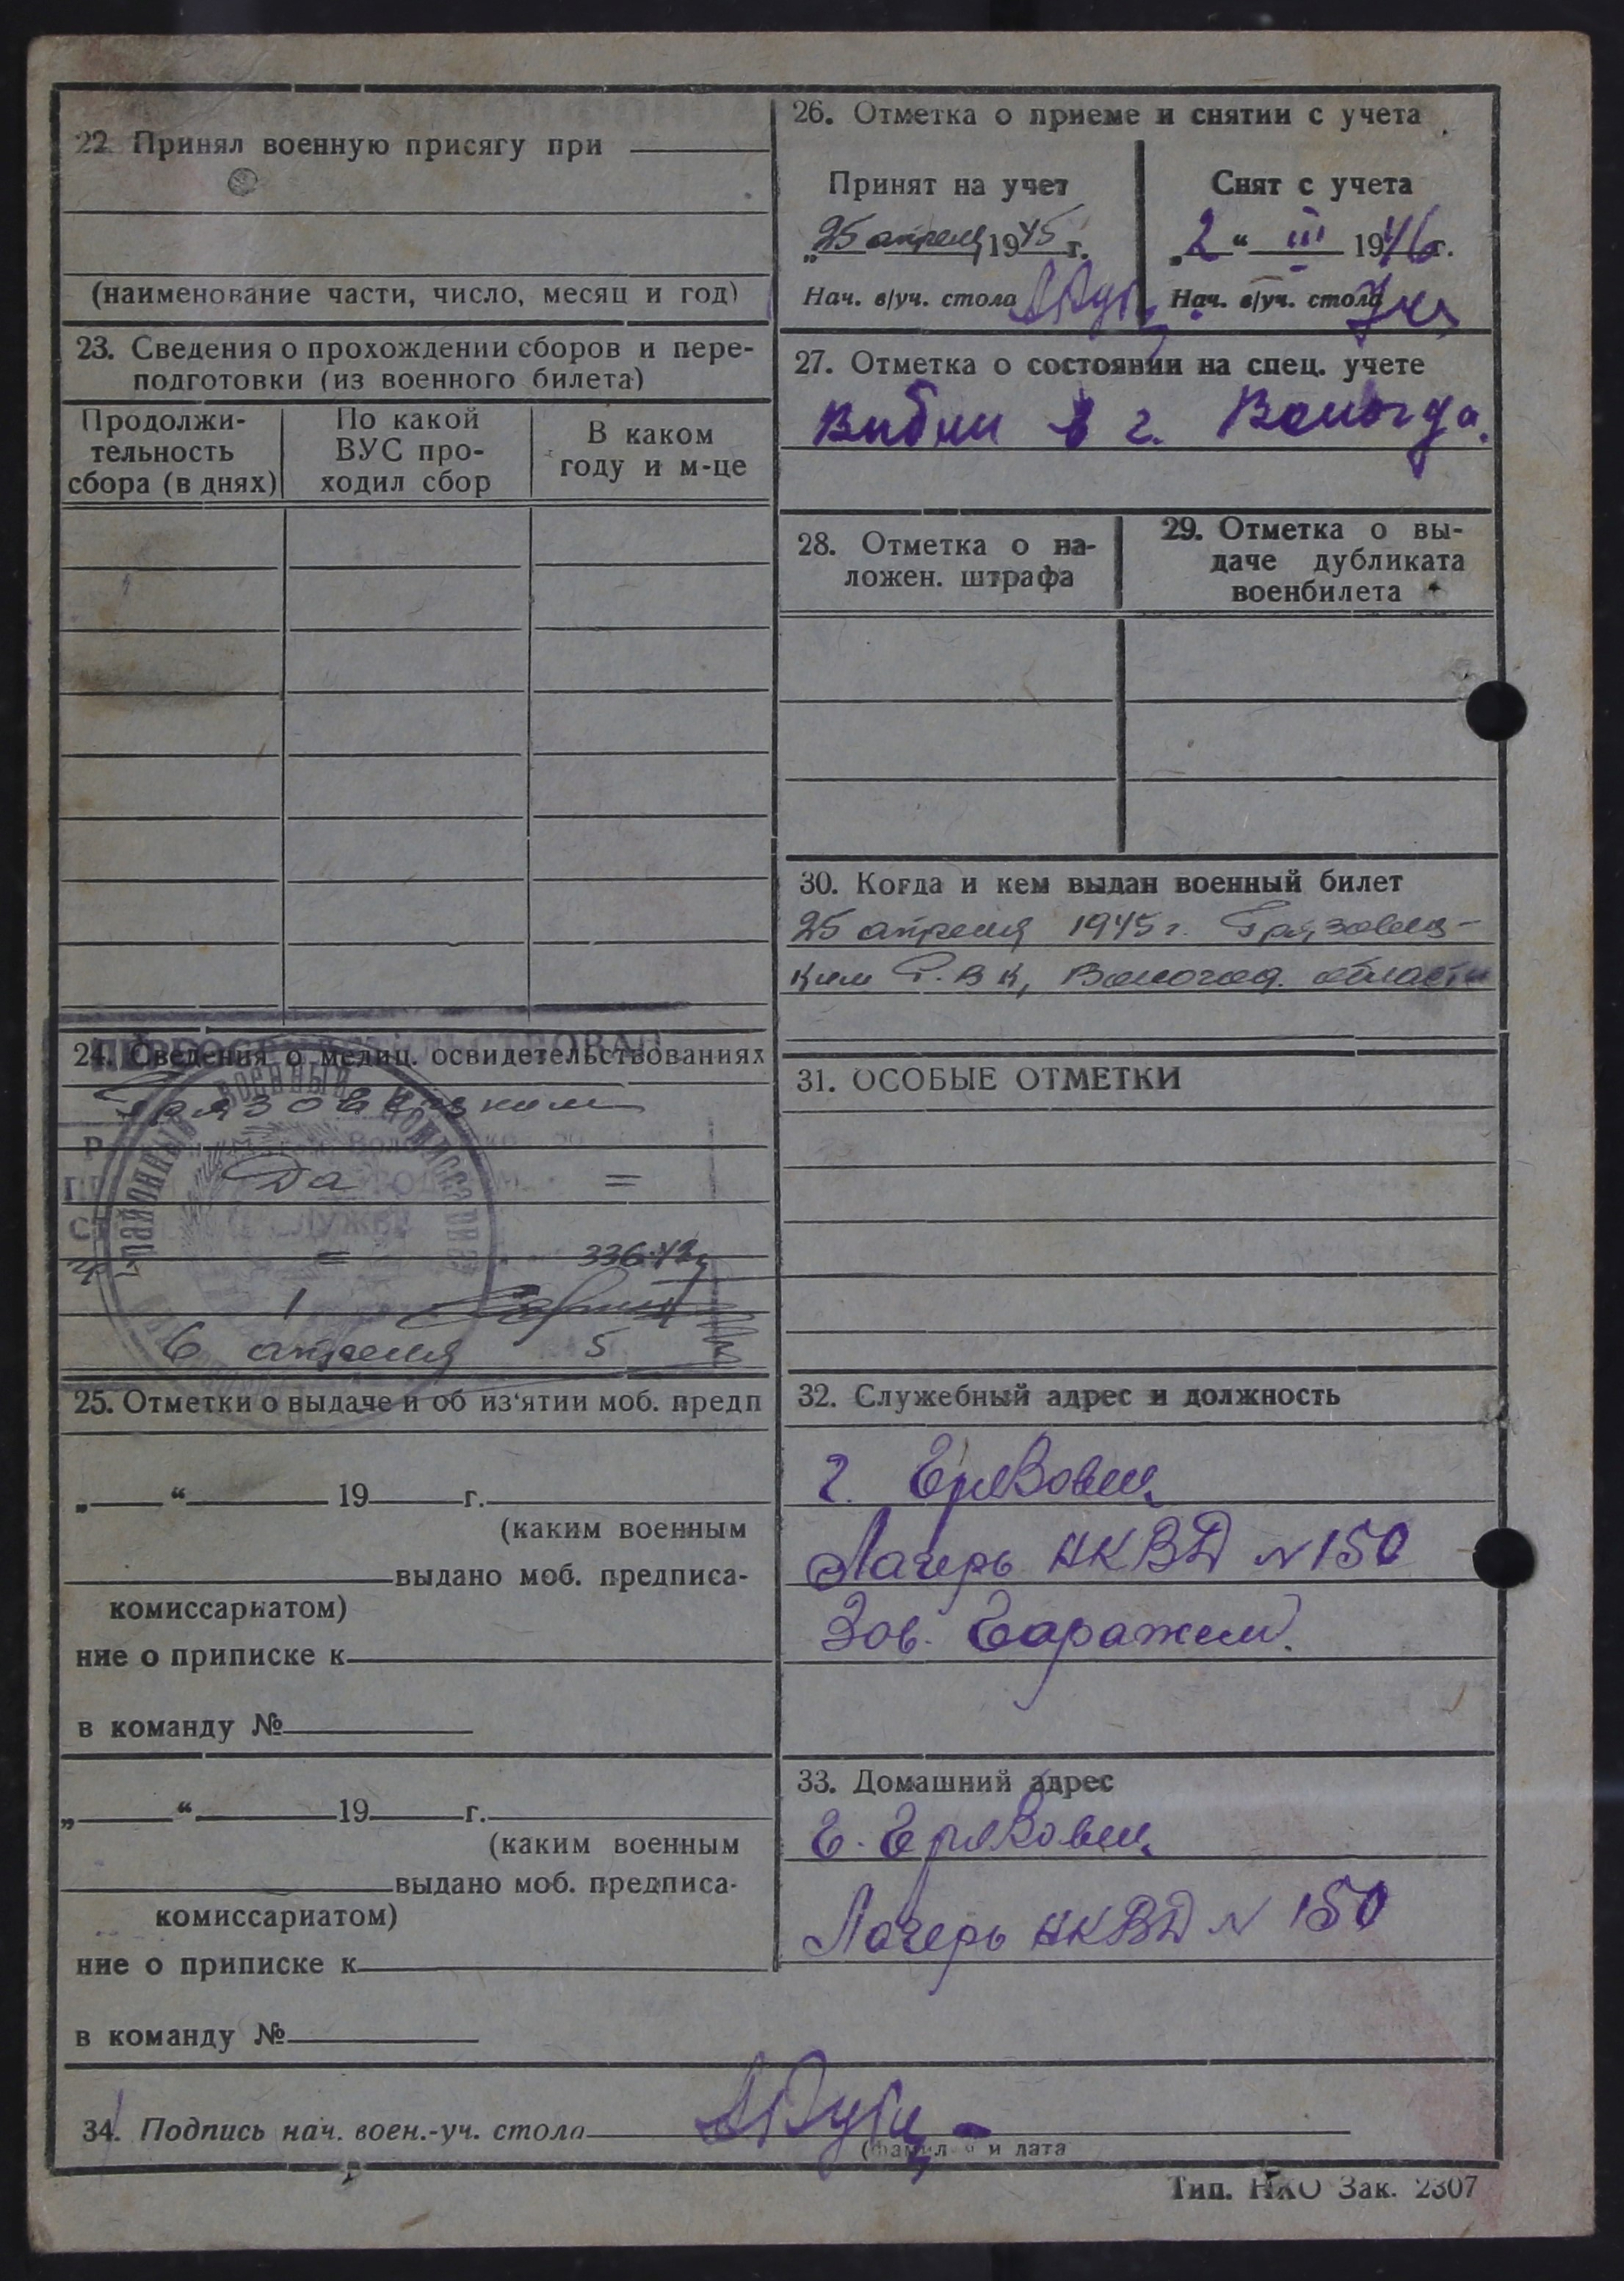 22. Принял военную присягу при
(наименование части, число, месяц и год)
23. Сведения о прохождении сборов и пере-
подготовки (из военного билета)
Продолжи-
тельность
сбора (в днях)
По какой
ВУС про-
ходил сбор
В каком
году и м-це
24. Сведения о медиц. освидетельствованиях
Грязовецким
Да =
= 336-42
1
6 апреля 5
25. Отметки о выдаче и об из'ятии моб. предп
„ “ 19 г.
(каким военным
выдано моб. предписа-
комиссариатом)
ние о приписке к
в команду №
„ “ 19 г.
(каким военным
выдано моб. предписа-
комиссариатом)
ние о приписке к
в команду №
26. Отметка о приеме и снятии с учета
Принят на учет
„25 апреля 1945 г.
Нач. в/уч. стола
Снят с учета
„2“ III 1946 г.
Нач. в/уч. стола
27. Отметка о состоянии на спец. учете
в г. Вологда.
28. Отметка о на-
ложен. штрафа
29. Отметка о вы-
даче дубликата
военбилета
30. Когда и кем выдан военный билет
25 апреля 1945 г. Грязовец-
ким Р.В К, Вологод. области
31. ОСОБЫЕ ОТМЕТКИ
32. Служебный адрес и должность
г. Грязовец
Лагерь НКВД N 150
Зав. Гаражем.
33. Домашний адрес
Г. Грязовец
Лагерь НКВД N 150
34. Подпись нач. воен.-уч. стола
и дата
Тип. НКО Зак. 2307